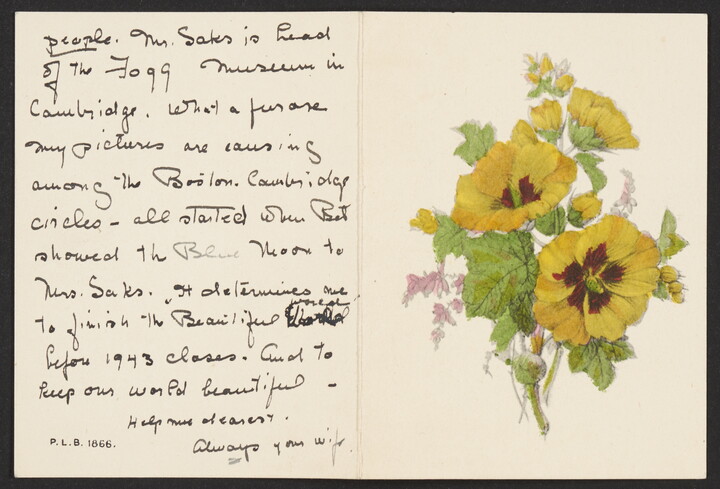 people. Mr. Saks is head
of the Fogg Museum in
Cambridge. What a furore
my pictures are causing
among the Boston-Cambridge
circles - all started when Bet
showed th Blue Moon to
Mrs. Saks. It determines me
to finish the Beautiful world
before 1943 closes. And to
keep our world beautiful -
Help me dearest.
Always your wife.
P.L.B. 1866.